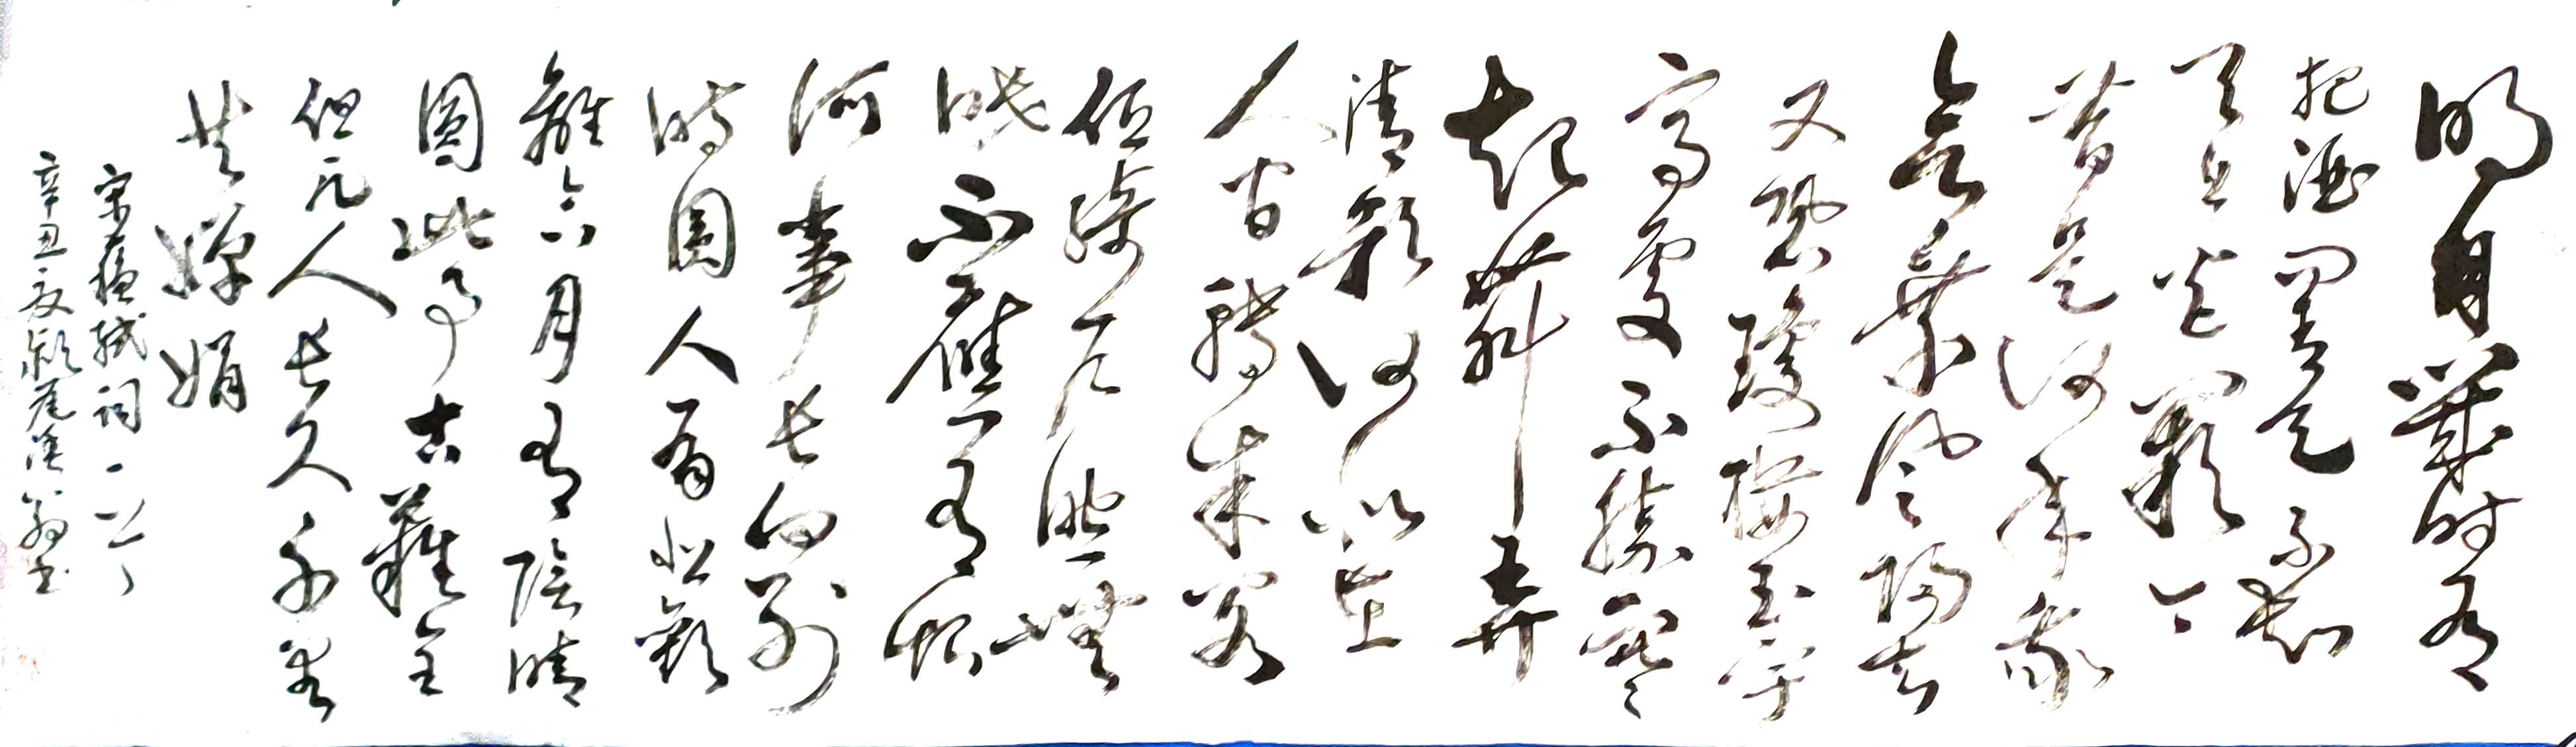 明月幾时有
把酒問青天不知
天上宫闕今
昔是何年我
欲乘風歸去
又恐瓊樓玉宇
高處不勝寒
起舞弄
清影何似在
人间轉朱閣
低綺户照無
眠不應有恨
何事長向别
時圓人有悲歡
離合月有陰晴
圓此事古難全
但元人長久千里
共嬋娟
宋蘇軾詞一首
辛丑夏潁尾漁翁书